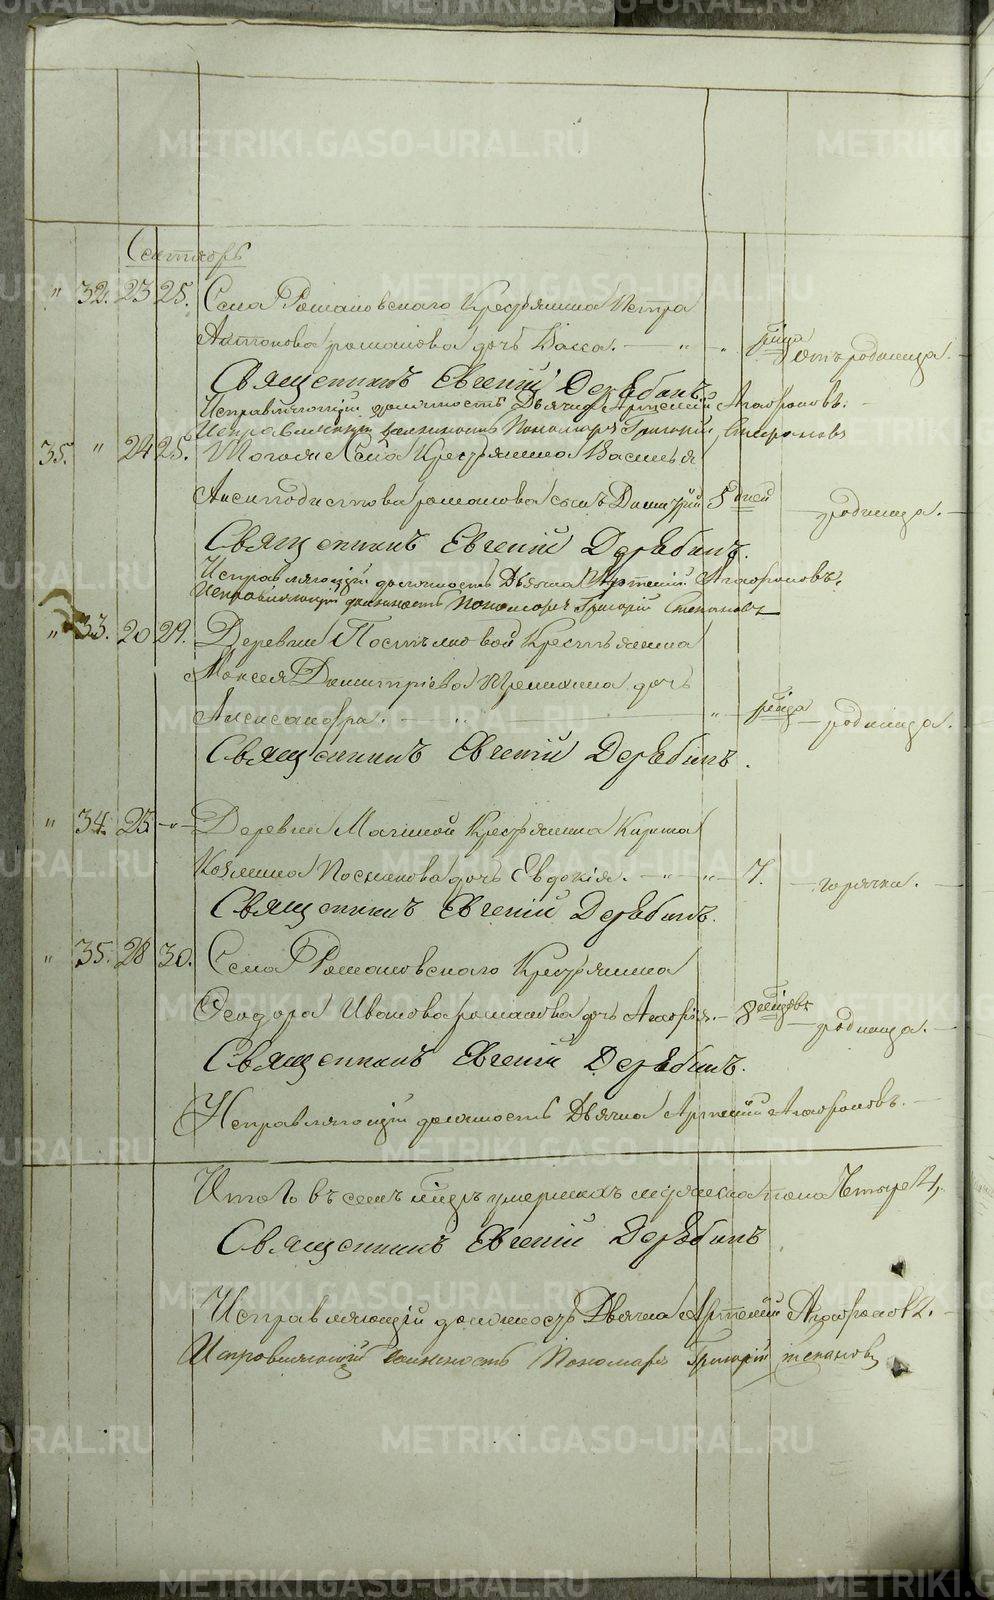 Сентябрь
" 32. 23 25. Села Романовскаго Крестьянина Петра
Антонова Романова дочь Васса. — " — " года отъ родимца.
Священникъ Евгеній Дерябинъ
Исправляющій должность Дьячка Артемій Агафоновъ.
Исправляющій должность Пономаря Григорій Степановъ
35. " 24 25. Тогоже Села Крестьянина Василья
романова сынъ Димитрій 5 дней родимца.
Священникъ Евгеній Дерябинъ.
Исправляющій должность Дьячка Артемій Агафоновъ.
Исправляющій должность Пономаря Григорій Степановъ
" 33. 20 29. Деревни Крестьянина
Димитріева дочь
Александра. — " — " года родимца.
Священникъ Евгеній Дерябинъ.
" 34. 25 —"— Деревни Крестьянина Кирила
Козмина дочь Евдокія. — " — " — 7. горячки.
Священникъ Евгеній Дерябинъ.
" 35. 28 30. Села Романовскаго Крестьянина
Ѳеодора Иванова романова дочь — 8 родимца.
Священникъ Евгеній Дерябинъ.
Исправляющій должность Дьячка Артемій Агафоновъ.
Итого въ семъ умершихъ мужеска пола Четыре 4,
Священникъ Евгеній Дерябинъ
Исправляющій должность Дьячка Артемій Агафоновъ.
Исправляющій должность Пономаря Григорій Степановъ
METRIKI.GASO-URAL.RU